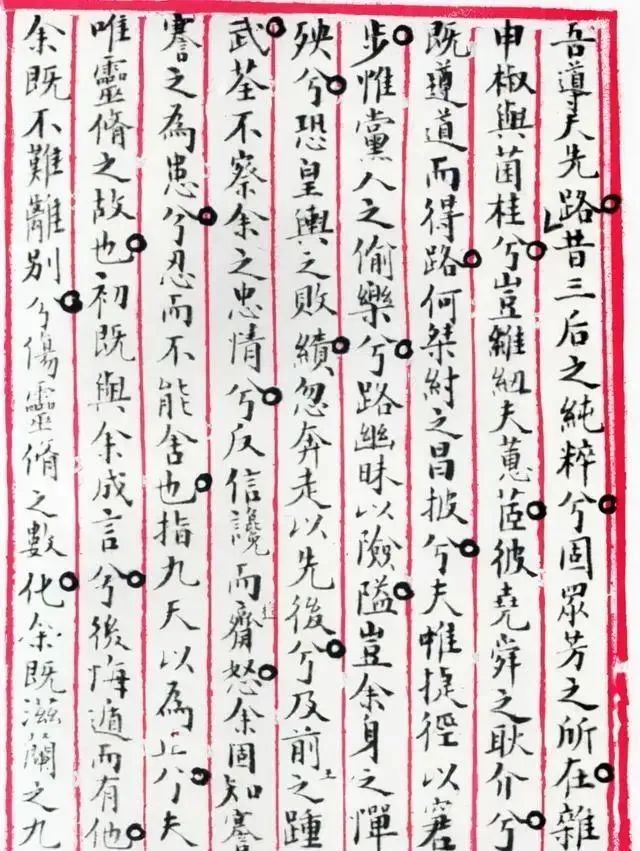 吾導夫先路。昔三后之純粹兮。固眾芳之所在。雜
申椒與菌桂兮。豈維紉夫蕙茝。彼堯舜之耿介兮。
既遵道而得路。何桀紂之昌披兮。夫唯捷徑以窘
步。惟黨人之偷樂兮。路幽昧以險隘。豈余身之憚
殃兮。恐皇輿之敗績。忽奔走以先後兮。及前王之踵
武。荃不察余之忠情兮。反信讒而齌怒。余固知謇
謇之為患兮。忍而不能舍也。指九天以為正兮。夫
唯靈脩之故也。初既與余成言兮。後悔遁而有他。
余既不難離別兮。傷靈脩之數化。余既滋蘭之九